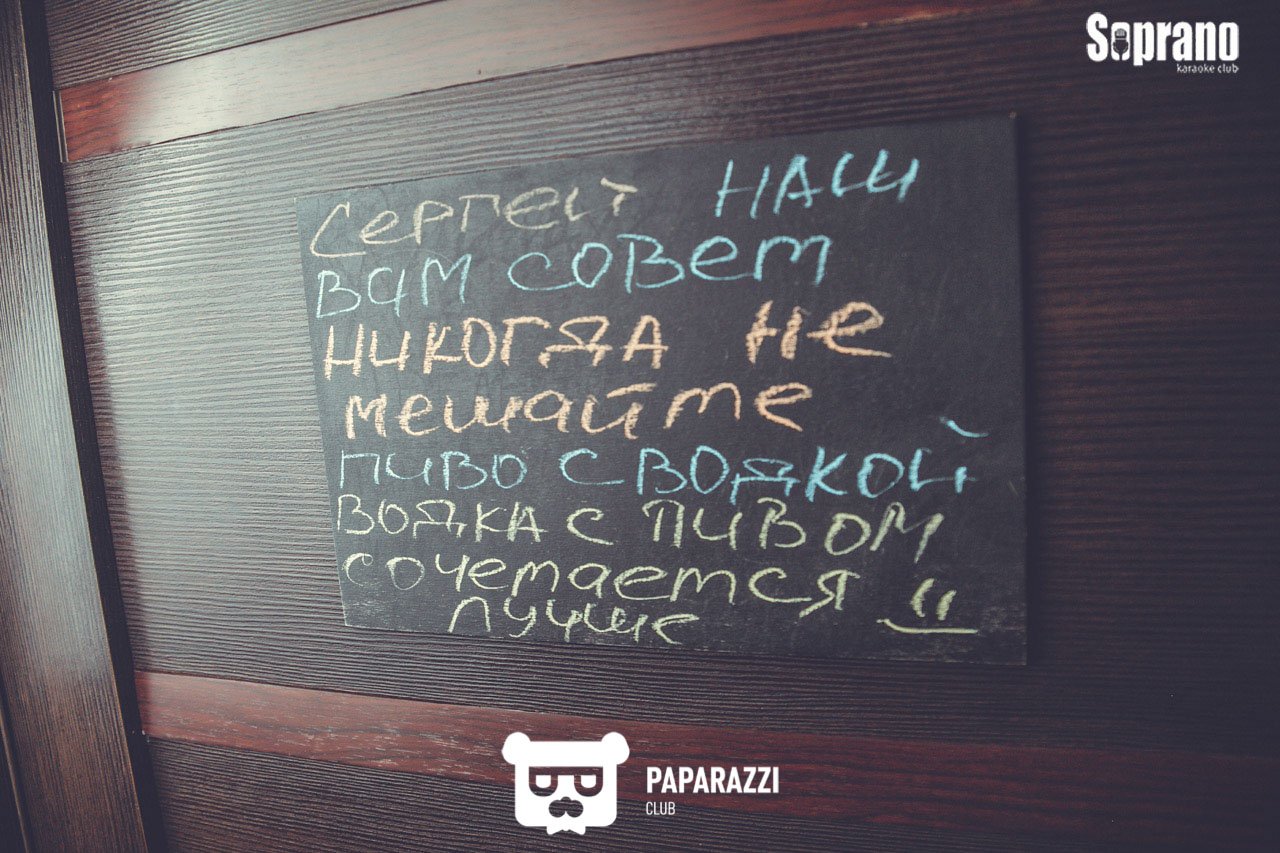 Soprano
karaoke club
Сергей НАШ
ВАМ СОВЕТ
НИКОГДА НЕ
мешайте
ПИВО С ВОДКОЙ
ВОДКА С ПИВОМ
сочетается
лучше
PAPARAZZI
CLUB